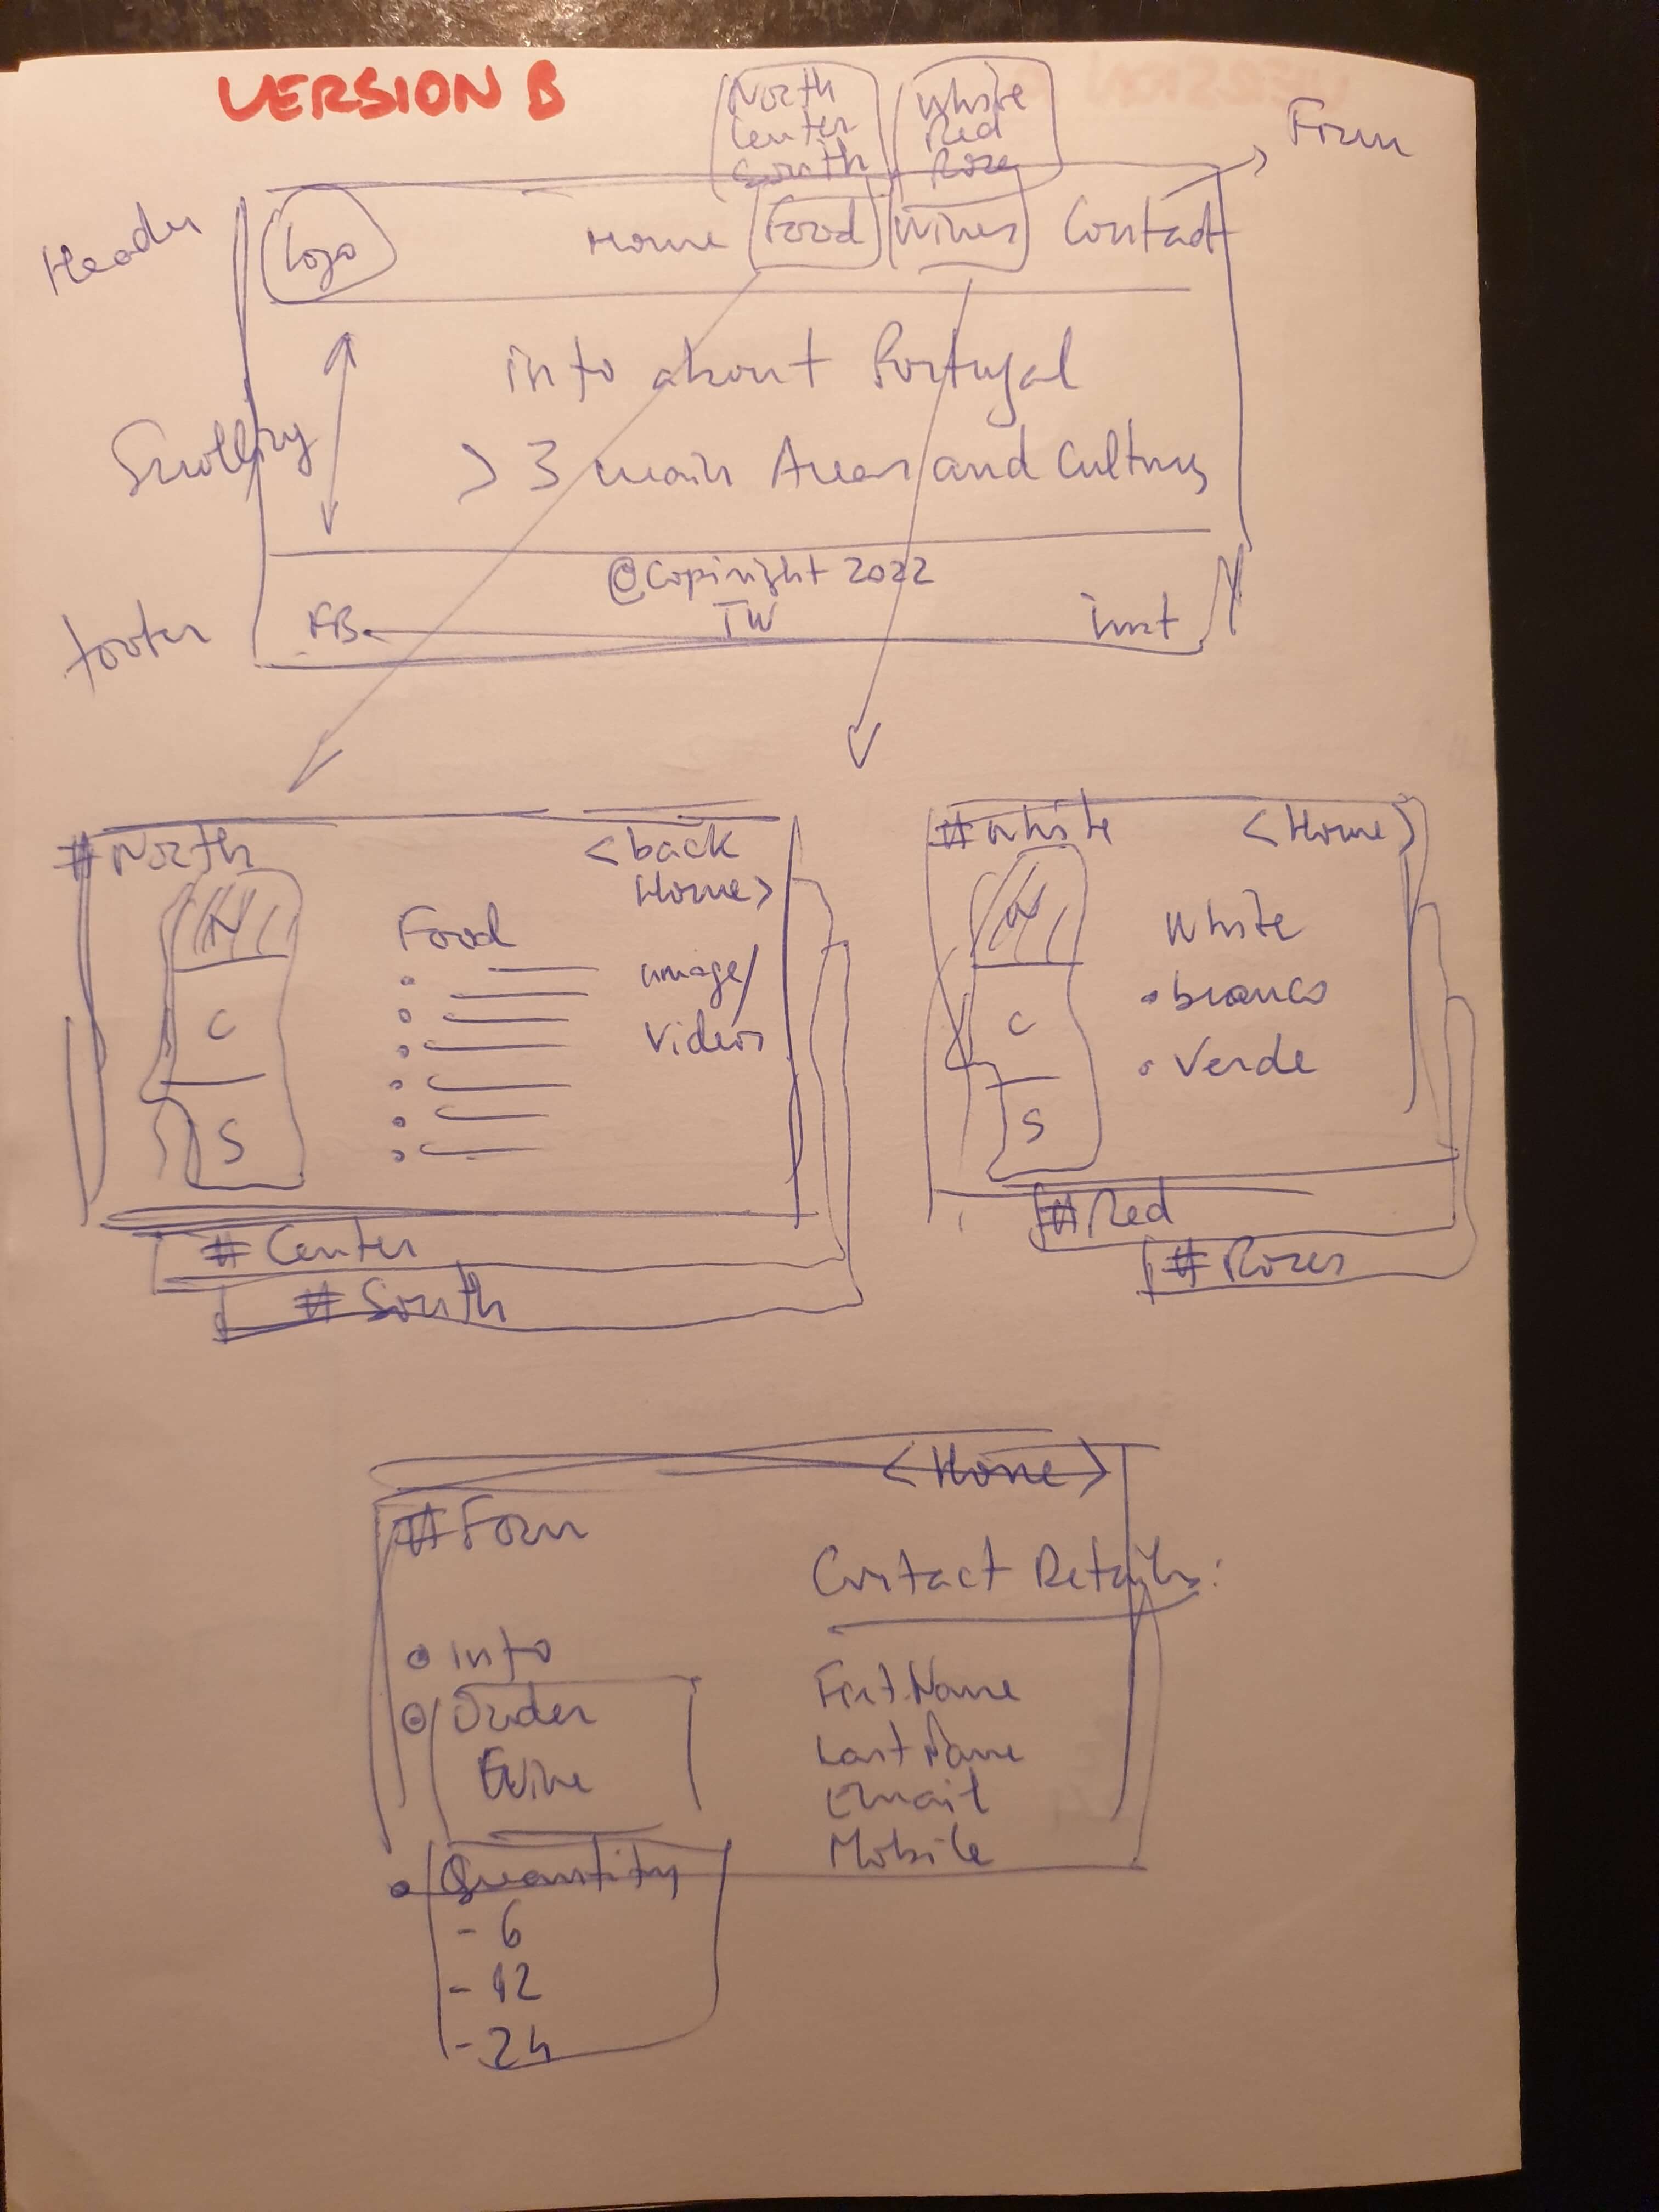 VERSION B
North
Center
South
White
Red
Rose
Form
Header
Logo
Home
Food
Wines
Contact
Scrolling
info about Portugal
> 3 main Areas and Cultures
footer
@Copiright 2022
TW
FB
inst
#North
<back
Home>
N
C
S
Food
image/
Videos
#Center
#South
#White
<Home>
N
C
S
White
• branco
• Verde
#Red
#Roses
<Home>
#Form
Contact Details:
• info
• Order
Wine
First Name
Last Name
Email
Mobile
• Quantity
- 6
- 12
- 24